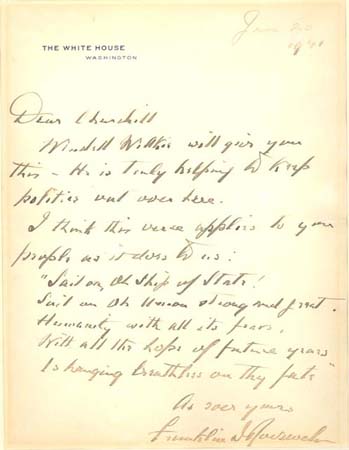 THE WHITE HOUSE
WASHINGTON
1941
Dear Churchill
Wendell Willkie will give you
this – He is truly helping to keep
politics out over here.
I think this verse applies to you
people as it does to us:
"Sail on, Oh Ship of State!
Sail on Oh Union strong and great.
Humanity with all its fears,
With all the hope of future years
Is hanging breathless on thy fate"
As ever yours
Franklin D. Roosevelt